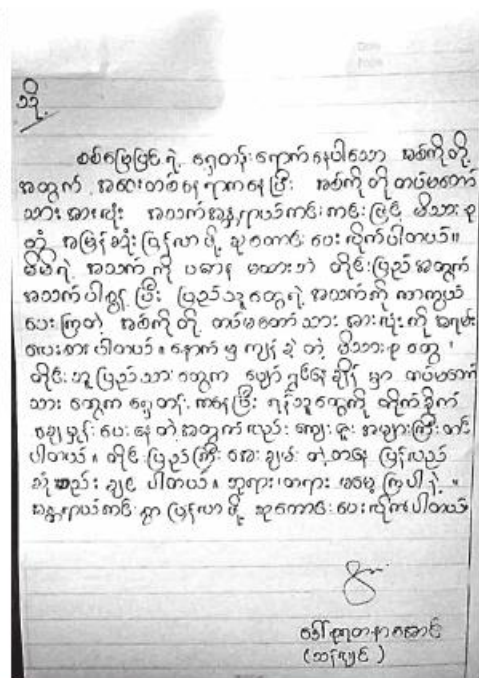 သို့
စစ်မြေပြင်ရဲ့ ရှေ့တန်းရောက်နေပါသော အစ်ကိုတို့
အတွက် အဝေးတစ်နေရာကနေပြီး အစ်ကိုတို့ တပ်မတော်
သားအားလုံး အသက်အန္တရာယ်ကင်းကင်းဖြင့် မိသားစု
ထံ အမြန်ဆုံးပြန်လာဖို့ ဆုတောင်းပေးလိုက်ပါတယ်။
မိမိရဲ့ အသက်ကို ပဓာန မထားဘဲ တိုင်းပြည်အတွက်
အသက်ပါစွန့်ပြီး ပြည်သူတွေရဲ့ အသက်ကို ကာကွယ်
ပေးကြတဲ့ အစ်ကိုတို့ တပ်မတော်သားအားလုံးကို အရမ်း
လေးစားပါတယ်။ နောက်မှ ကျန်ခဲ့တဲ့ မိသားစုတွေ
တိုင်းသူပြည်သားတွေက ပျော်ရွှင်နေချိန်မှာ တပ်မတော်
သားတွေက ရှေ့တန်းကနေပြီး ရန်သူတွေကို တိုက်ခိုက်
ချေမှုန်းပေးနေတဲ့အတွက်လည်း ကျေးဇူးအများကြီးတင်
ပါတယ်။ တိုင်းပြည်ကြီးအေးချမ်းတဲ့တနေ့ ပြန်လည်
ဆုံစည်းချင်ပါတယ်။ ဘုရားတရားမမေ့ကြပါနဲ့။
အန္တရာယ်ကင်းစွာပြန်လာဖို့ ဆုတောင်းပေးလိုက်ပါတယ်
ဒေါ်ရတနာအောင်
(သန်လျင်)